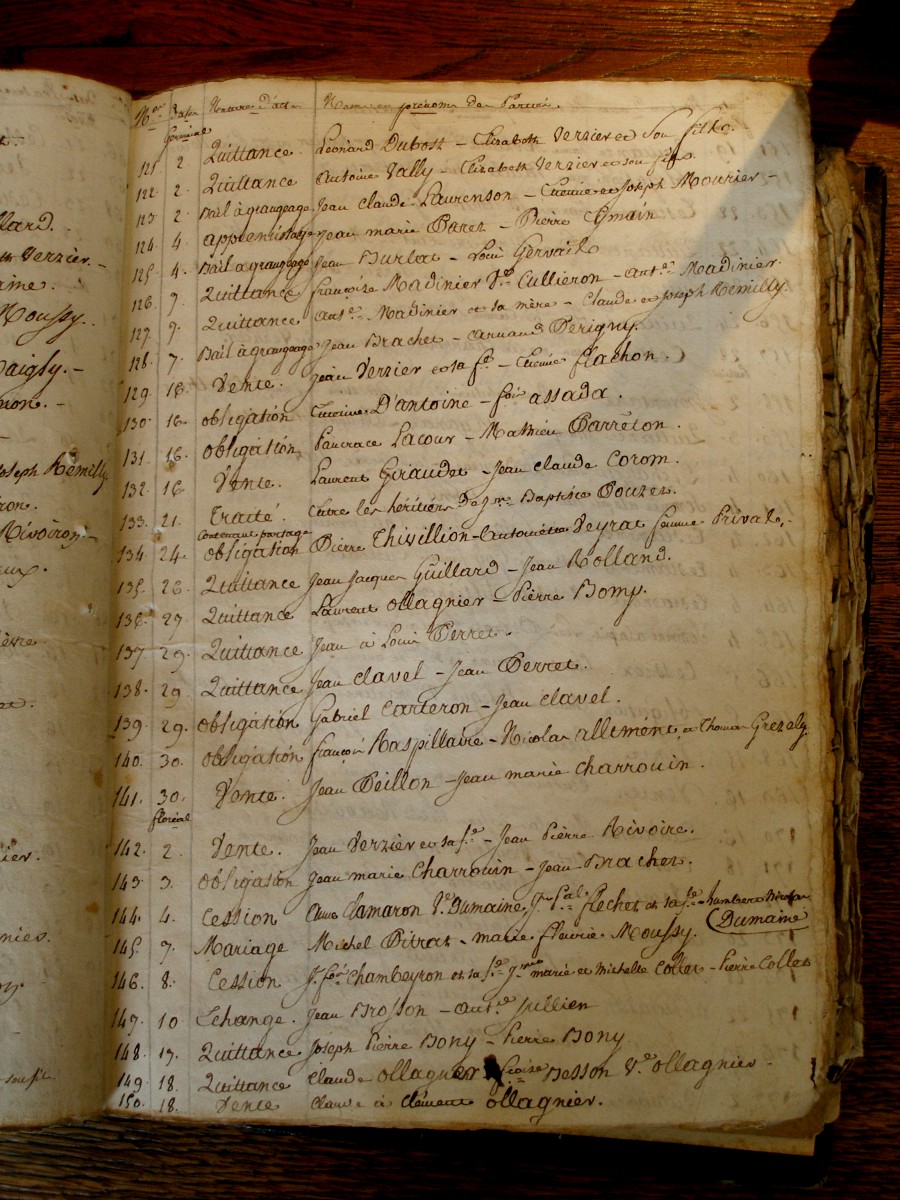 Nos Dates Nature d'acte Noms et prénoms des Parties.
Germinal
121 2 Quittance Léonard Dubost - Elizabeth Verzier et son fils.
122 2 Quittance Antoine Vally - Elizabeth Verzier et son fils.
123 2 Bail à grangeage Jean Claude Laurenson - Etienne et Joseph Mourier -
124 4 apprentissage Jean marie Paret - Pierre
125 4 Bail à grangeage Jean Burlat - Louis Gervais
126 7 Quittance françoise Madinier Ve Cullieron - Ante Madinier.
127 9 Quittance Ante Madinier et sa mère - Claude et Joseph Remilly.
128 7 Bail à grangeage Jean Brachet - Perigny.
129 16 Vente. Jean Verzier et sa fe - Etienne flachon.
130 16 obligation Etienne D'antoine - fois assada.
131 16 obligation Pancrace Lacour - Mathieu Barreton.
132 16 Vente. Laurent Giraudet - Jean Claude Corom.
133 21. Traité. Entre les héritiers de Baptiste Bouzet.
Contenant partage
134 24 obligation Pierre Thivillion - Antoinette Veyrat femme Privat.
135 26 Quittance Jean Jacques Guillard - Jean Rolland.
136 27 Quittance Laurent ollagnier - Pierre Bony.
137 29 Quittance Jean à Louis Perret.
138 29 Quittance Jean Clavel - Jean Perret.
139 29. obligation Gabriel Carteron - Jean Clavel.
140 30. obligation françois Raspillaire - Nicolas allement et Thomas Grezely
141. 30. Vente. Jean Peillon - Jean marie Charrouin.
floréal
142. 2. Vente. Jean Verzier et sa fe - Jean Pierre Rivoire.
143 3. obligation Jean marie Charrouin - Jean Brachet.
144. 4. Cession Anne Clamaron Ve Dumaine, flechet et sa fe - humbert Nicolas
Dumaine
145. 7. Mariage Michel Pitrat - marie fleurie Moussy.
146 8. Cession Jn fois Chambeyron et sa fe marie et Michelle Collet - Pierre Collet
147. 10 Echange. Jean Brosson - Ante Jullien
148. 17. Quittance Joseph Pierre Bony - Pierre Bony
149 18. Quittance Claude ollagnier Besson Ve ollagnier -
150. 18. Vente Claude à Clément ollagnier.